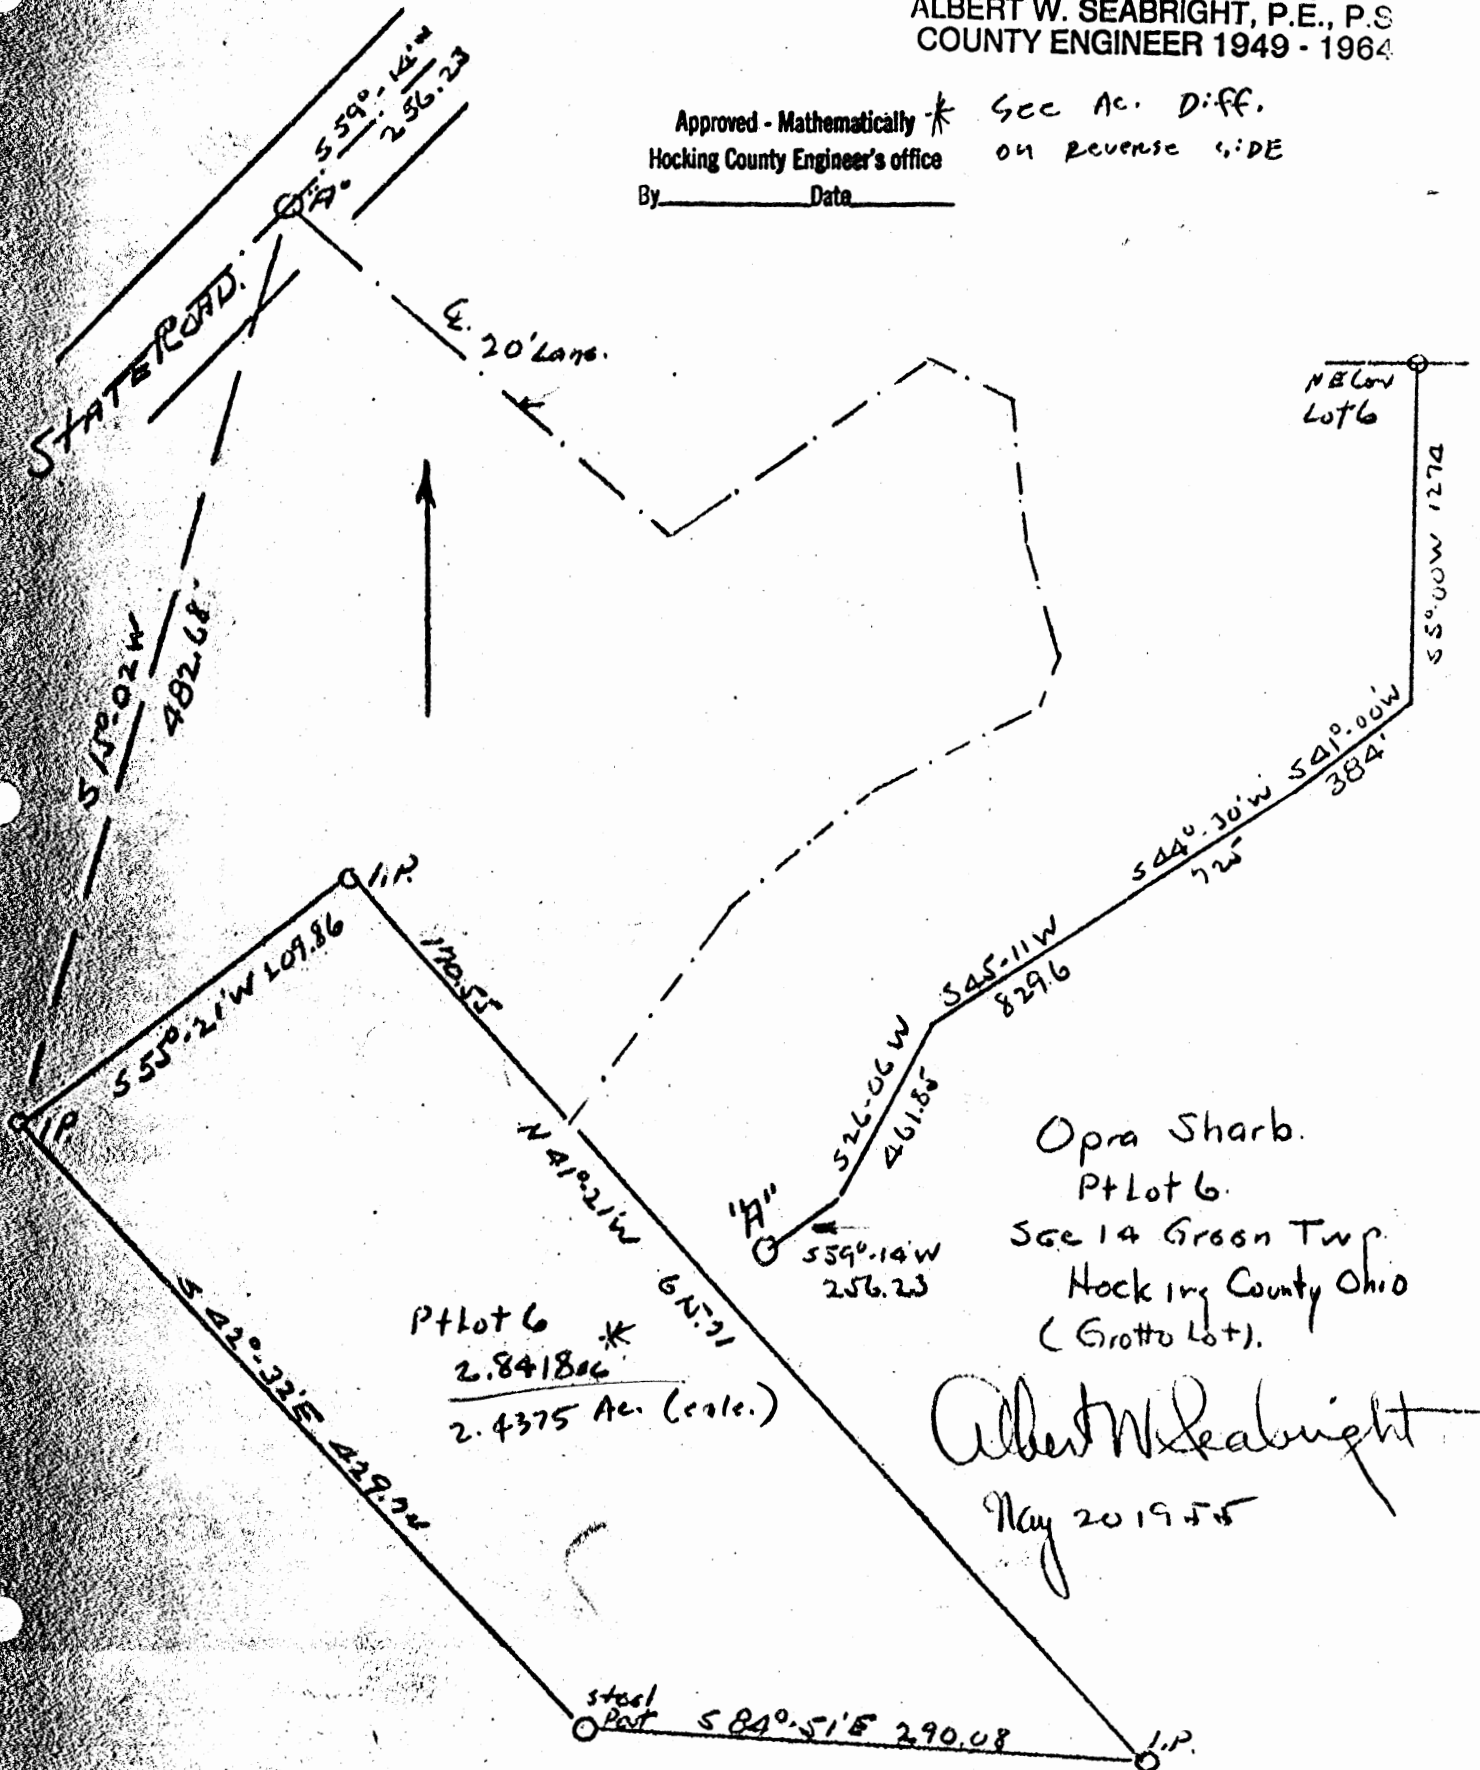 ALBERT W. SEABRIGHT, P.E., P.S
COUNTY ENGINEER 1949 - 1964
Approved - Mathematically * See Ac. Diff.
Hocking County Engineer's office on Reverse SiDE
By Date
S 59°-14'W
256.23
"A"
STATE ROAD.
℄.
20' Lane.
NE Cor
Lot 6
S5°-00W 1274
S 41°-00'W
384'
S 44°-30'W
725
S45-11W
829.6
S26-06 W
461.85
"A"
S59°-14'W
256.23
S 15°-02 W
482.68'
I.P.
S 55°-21'W 209.86
I.P.
170.55
N 41°-21'W
S 42°-32'E 429.74
Pt Lot 6
2.8418 ac *
2.4375 Ac. (calc.)
Opra Sharb.
Pt Lot 6.
Sec 14 Green Twp.
Hocking County Ohio
(Grotto Lot).
Albert W. Seabright
May 20 1955
steel
Post S 84°-51'E 290.08 I.P.